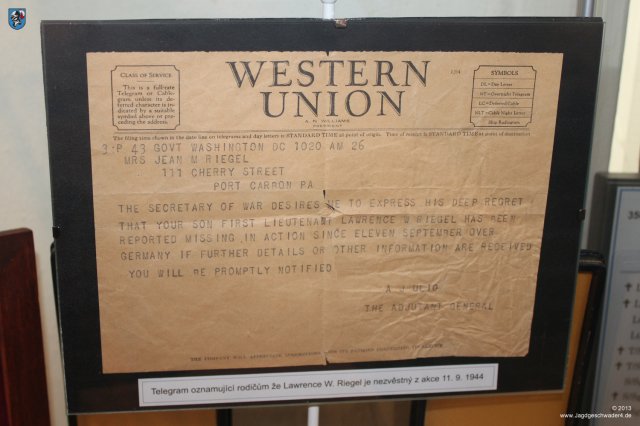 CLASS OF SERVICE
This is a full-rate
Telegram or Cable-
gram unless its de-
ferred character is
indicated by a suitable
symbol above or pre-
ceding the address.
WESTERN
UNION
A. N. WILLIAMS
PRESIDENT
1204
SYMBOLS
DL=Day Letter
NT=Overnight Telegram
LC=Deferred Cable
NLT=Cable Night Letter
Ship Radiogram
The filing time shown in the date line on telegrams and day letters is STANDARD TIME at point of origin. Time of receipt is STANDARD TIME at point of destination
3 P 43 GOVT WASHINGTON DC 1020 AM 26
MRS JEAN M RIEGEL
111 CHERRY STREET
PORT CARBON PA
THE SECRETARY OF WAR DESIRES ME TO EXPRESS HIS DEEP REGRET
THAT YOUR SON FIRST LIEUTENANT LAWRENCE W RIEGEL HAS BEEN
REPORTED MISSING IN ACTION SINCE ELEVEN SEPTEMBER OVER
GERMANY IF FURTHER DETAILS OR OTHER INFORMATION ARE RECEIVED
YOU WILL BE PROMPTLY NOTIFIED
A J ULIO
THE ADJUTANT GENERAL
THE COMPANY WILL APPRECIATE SUGGESTIONS FROM ITS PATRONS CONCERNING ITS SERVICE
Telegram oznamující rodičům že Lawrence W. Riegel je nezvěstný z akce 11. 9. 1944
© 2013
www.Jagdgeschwader4.de